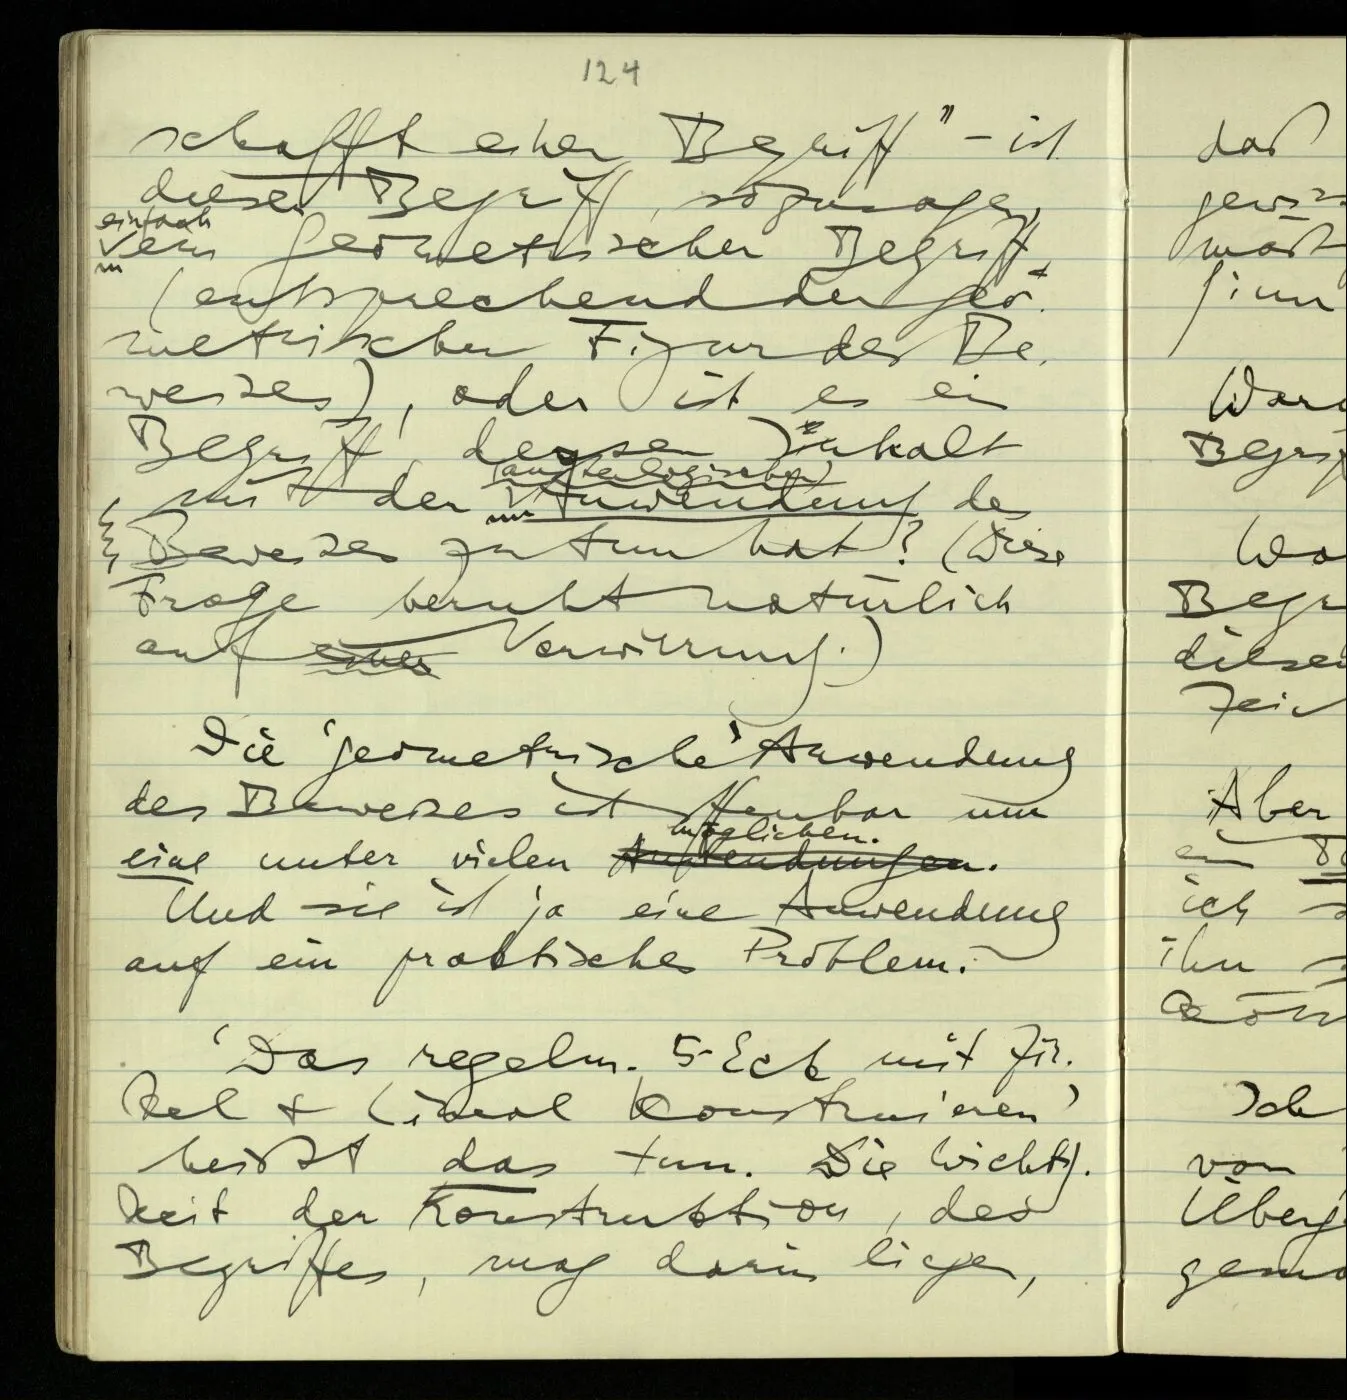 124
schafft einen Begriff" – ist
dieser Begriff, sozusagen,
einfach
ein geometrischer Begriff
(entsprechend der geo-
metrischen Figur des Be-
weises), oder ist es ein
Begriff, dessen Inhalt
(außerlogischen)
mit der Anwendung des
Beweises zu tun hat? (Diese
Frage beruht natürlich
auf einer Verwirrung.)
Die 'geometrische' Anwendung
des Beweises ist offenbar nur
möglichen.
eine unter vielen Anwendungen.
Und sie ist ja eine Anwendung
auf ein praktisches Problem.
'Das regelm. 5-Eck mit Zir-
kel & Lineal konstruieren'
heißt das tun. Die Wichtig-
keit der Konstruktion, des
Begriffes, mag darin liegen,
daß
Aber
ein
ich
ihn
Ich
von